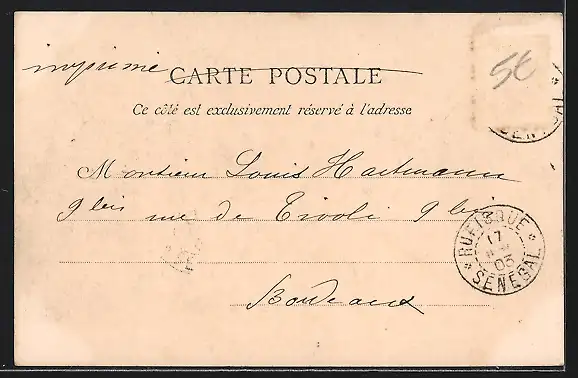 imprimé
CARTE POSTALE
Ce côté est exclusivement réservé à l'adresse
5€
Monsieur Louis Hartmann
9 bis rue de Tivoli 9 bis
Bordeaux
RUFISQUE
17
03
SÉNÉGAL